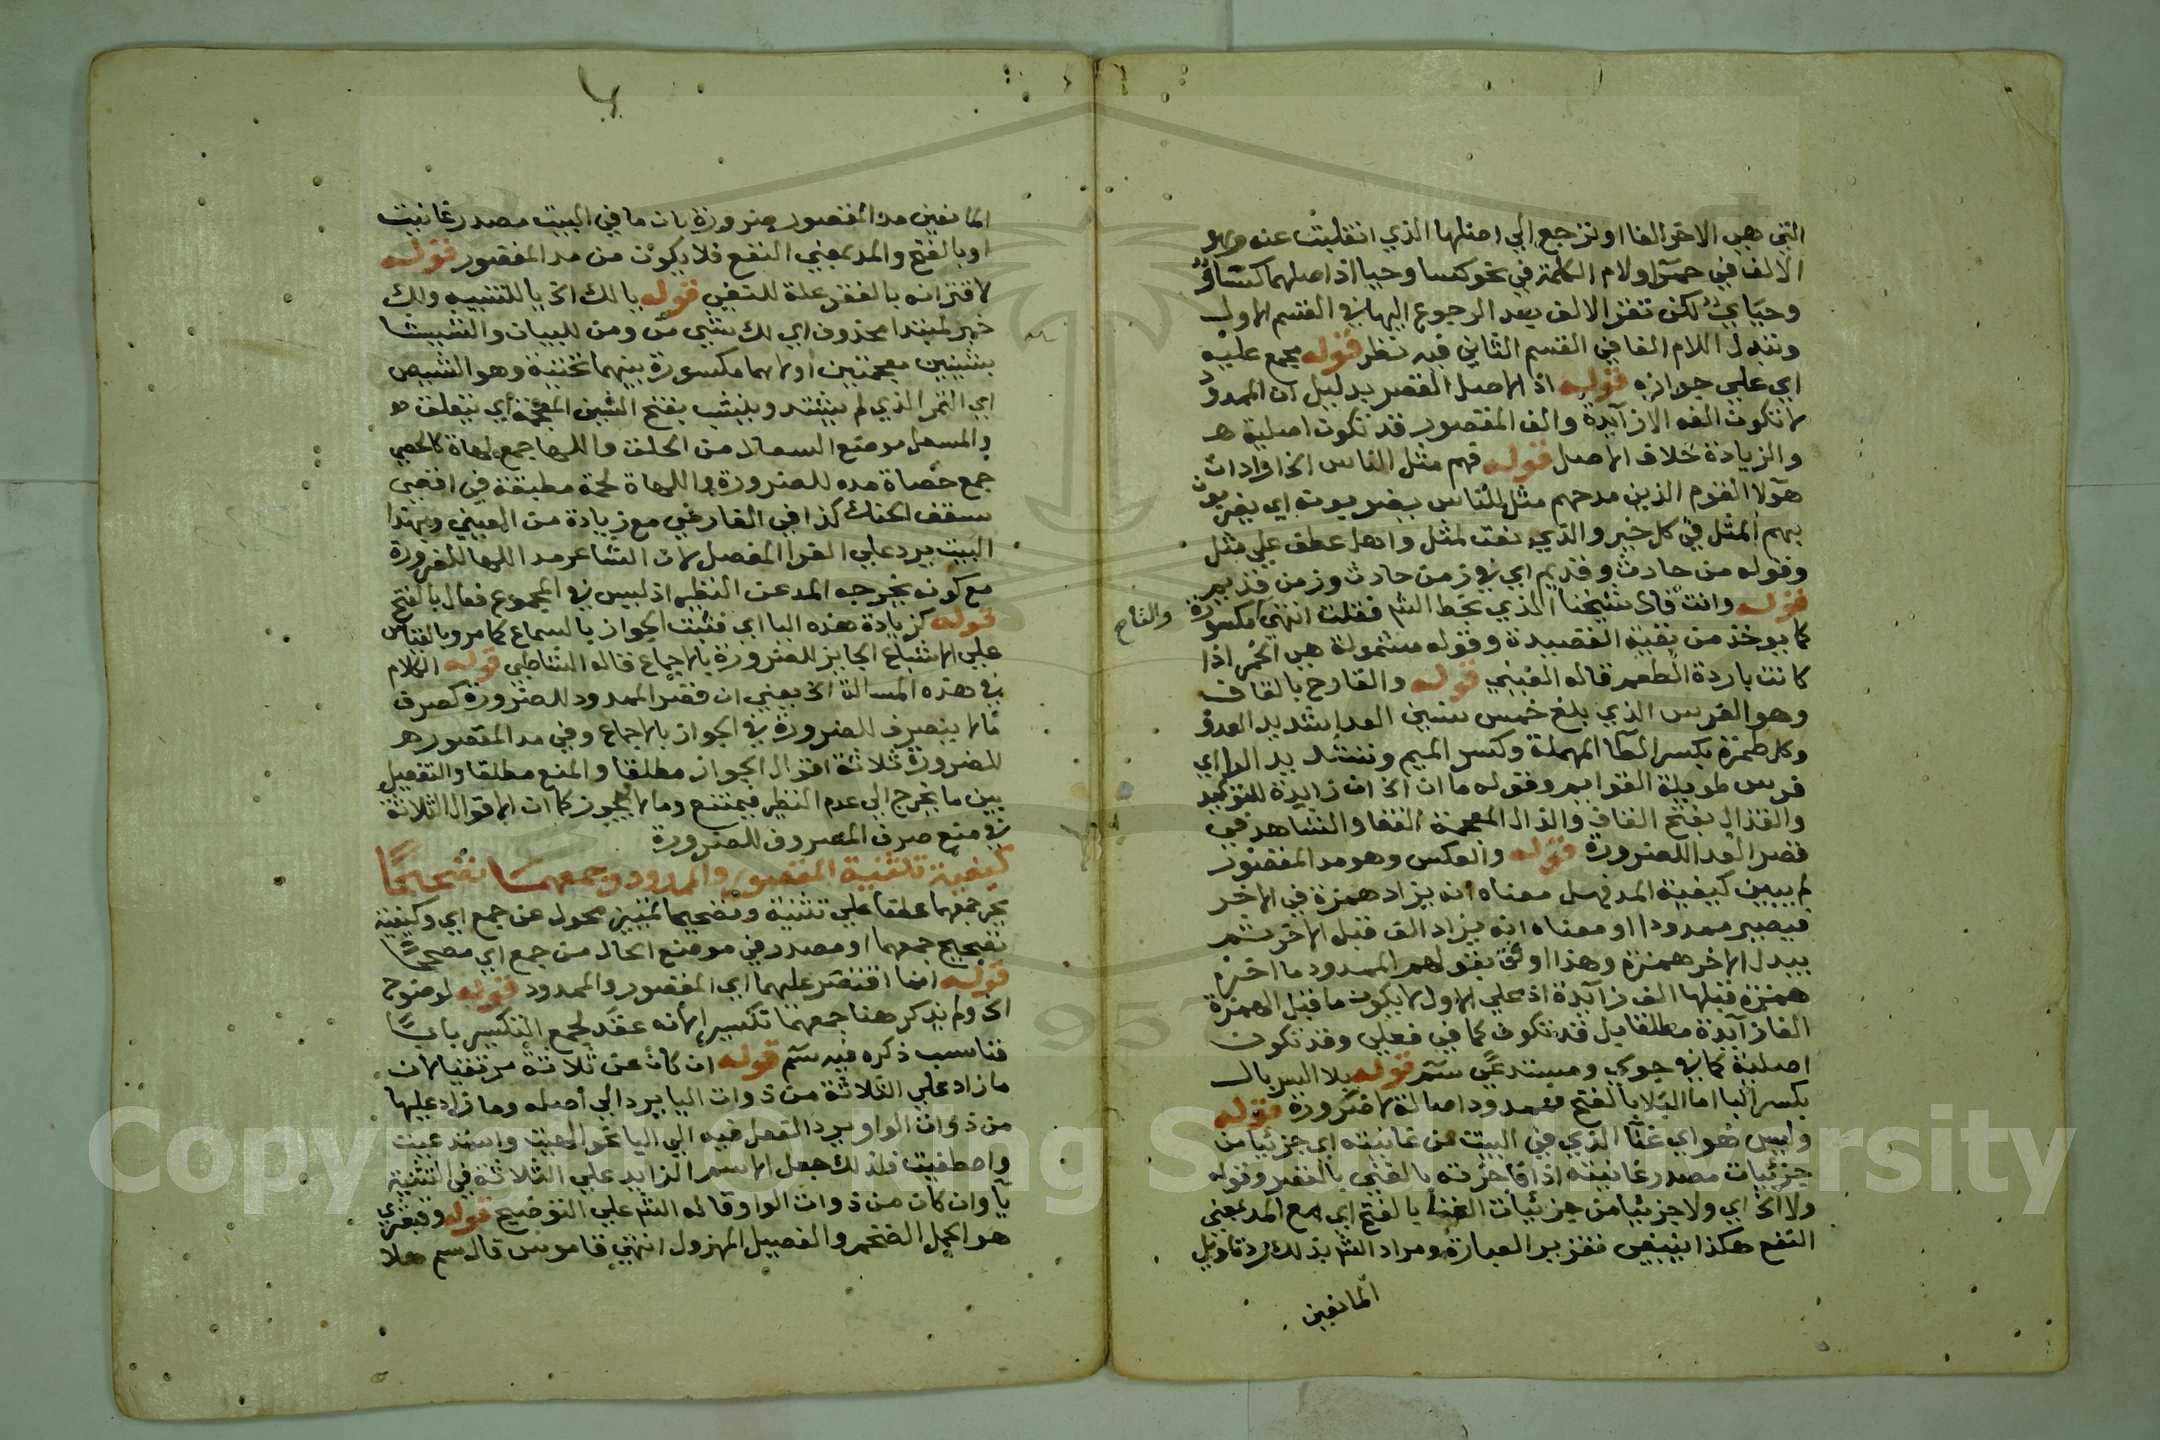 التي هي الاخر الفا او نرجع الي اصلها الذي انقلبت عنه وهو
الالف في حمرآ ولام الكلمة في نحو كسا وحيا اذ اصلهما كساوٌ
وحيايٌ لكن تغز الالف بعد الرجوع اليها في القسم الاول
وتبدل اللام الفا في القسم الثاني فيه نظر قوله مجمع عليه
اي علي جوازه قوله اذ الاصل القصر بدليل ان الممدود
لا تكون الفه الا زآيدة والف المقصور قد تكون اصلية هـ
والزيادة خلاف الاصل قوله فهم مثل الناس الخ اراد ان
هآولا القوم الذين مدحهم مثل للناس يضربونه اي يضربون
بهم المثل في كل خير والذي نعت لمثل واهل عطف علي مثل
وقوله من حادث وقديم اي في زمن حادث وزمن قديم
قوله وانت قال شيخنا الذي بخط الش فقلت انتهي مكسورة والقارح
كما يوخذ من بقية القصيدة وقوله مشمولة هي الخمر اذا
كانت باردة الطعم قاله العيني قوله والقارح بالقاف
وهو الفرس الذي بلغ خمس سنين العدا شديد العدو
وكل طمرة بكسر الطآ المهملة وكسر الميم وتشديد الرا اي
فرس طويلة القوايم وقوله ما ان الخ ان زايدة للتوكيد
والقذال بفتح القاف والذال المعجمة القفا والشاهد في
قصر العدا للضرورة قوله والعكس وهو مد المقصور
لم يبين كيفية المد فهل معناه انه يزاد همزة في الاخر
فيصير ممدودا او معناه انه يزاد الف قبل الاخر ثم
يبدل الاخر همزة وهذا اوفق بقولهم الممدود ما اخره
همزة قبلها الف زآيدة اذ علي الاول لا يكون ما قبل الهمزة
الفا زآيدة مطلقا بل قد تكون كما في فعلي وقد تكون
اصلية كما في جوي ومستدعي سم قوله بلا اليس بال
بكسر البا اما البلا بالفتح فممدود اصالة لا ضرورة قوله
وليس هو اي غنآ الذي في البيت من غانيته اي جزئيا من
جزئيات مصدر غانيته اذا فاخرته بالغني بالفقر وقوله
ولا الخ اي ولا جزئيا من جزئيات الغنآ بالفتح اي مع المد بمعني
النفع هكذا ينبغي تقرير العبارة ومراد الش بذلك رد تاويل
المانعين
المانعين مد المقصور ضرورة بان ما في البيت مصدر غانيت
او بالفتح والمد بمعني النفع فلا يكون من مد المقصور قوله
لاقترانه بالفقر علة للنفي قوله يا لك الخ يا للتنبيه ولك
خبر لمبتدا محذوف اي لك شي من ومن للبيان والشيشا
بشينين معجمتين اولاهما مكسورة بينهما تحتية وهو الشيص
اي التمر الذي لم يشتد وينشب بفتح الشين المعجمة اي يتعلق
والمسعل موضع السعال من الحلق واللها جمع لهاة كالحصي
جمع حصاة مده للضرورة واللهاة لحمة مطبقة في اقصي
سقف الحنك كذا في الفارضي مع زيادة من العيني وبهذا
البيت يرد علي الفرا المفصل لان الشاعر مد اللها للضرورة
مع كونه يخرجه المد عن النظير اذ ليس في الجموع فعال بالفتح
قوله كزيادة هذه اليا اي فثبت الجواز بالسماع كما مر وبالقياس
علي الاشباع الجايز للضرورة بالاجماع قاله الشاطبي قوله الكلام
في هذه المسالة الخ يعني ان قصر الممدود للضرورة كصرف
ما لا ينصرف للضرورة في الجواز بالاجماع وفي مد المقصور هـ
للضرورة ثلاثة اقوال الجواز مطلقا والمنع مطلقا والتفصيل
بين ما يخرج الي عدم النظير فيمتنع وما لا فيجوز كما ان الاقوال الثلاثة
في منع صرف المصروف للضرورة
كيفية تثنية المقصور والممدود وجمعهما تصحيحًا
بجر جمعهما عطفا علي تثنية وتصحيحا تمييز محول عن جمع اي وكيفية
تصحيح جمعهما او مصدر في موضع الحال من جمع اي مصححًا
قوله انما اقتصر عليهما اي المقصور والممدود قوله لوضوح
الخ ولم يذكر هنا جمعهما تكسيرا لانه عقد لجمع التكسير بابًا
فناسب ذكره فيه سم قوله ان كان عن ثلاثة مرتقيا لان
ما زاد علي الثلاثة من ذوات اليا يرد الي أصله وما زاد عليها
من ذوات الواو يرد الفعل فيه الي اليا نحو الهيت واستدعيت
واصطفيت فلذلك جعل الاسم الزايد علي الثلاثة في التثنية
يآ وان كان من ذوات الواو قاله الش علي التوضيح قوله وقبعثري
هو الجمل الضخم والفصيل المهزول انتهي قاموس قال سم هلا